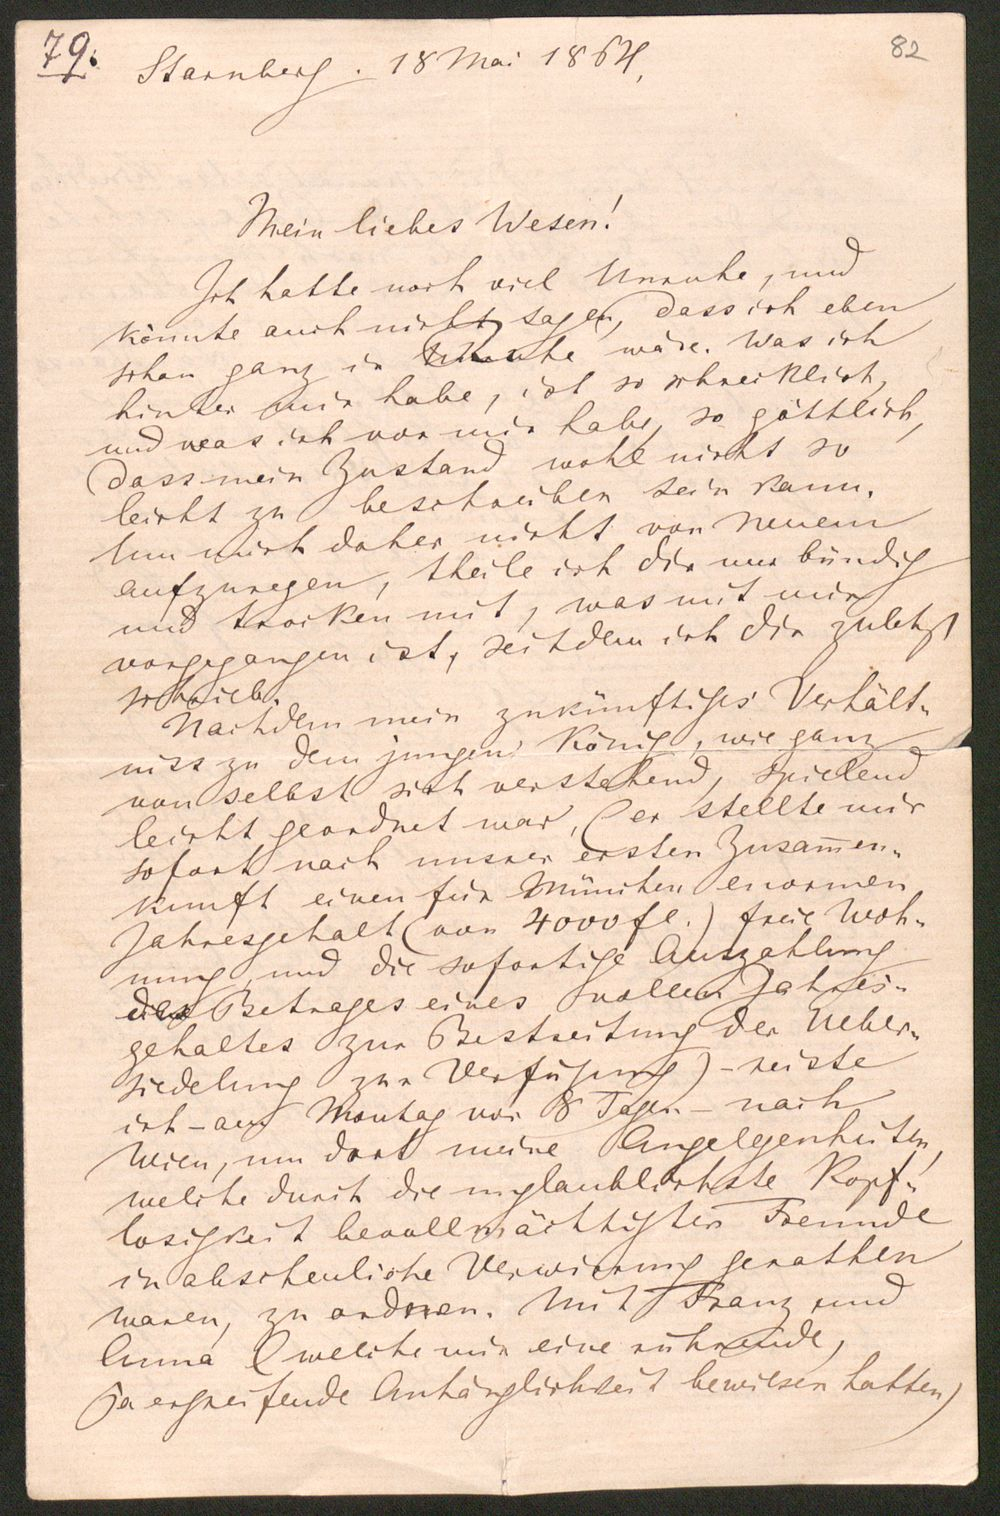 79.
82
Starnberg. 18 Mai 1864.
Mein liebes Wesen!
Ich hatte noch viel Unruhe, und
könnte auch nicht sagen, dass ich eben
schon ganz in Ruhe wäre. Was ich
hinter mir habe, ist so schrecklich,
und was ich vor mir habe, so göttlich,
dass mein Zustand wohl nicht so
leicht zu beschreiben sein kann.
Um mich daher nicht von Neuem
aufzuregen, theile ich dir nur bündig
und trocken mit, was mit mir
vorgegangen ist, seitdem ich dir zuletzt
schrieb.
Nachdem mein zukünftiges Verhält-
niss zu dem jungen König, wie ganz
von selbst sich verstehend, spielend
leicht geordnet war, (er stellte mir
sofort nach unsrer ersten Zusam̅en-
kunft einen für München enormen
Jahresgehalt (von 4000 fl.) freie Woh-
nung, und die sofortige Auszahlung
des Betrages eines vollen Jahres-
gehaltes zur Bestreitung der Ueber-
siedelung zur Verfügung) - reiste
ich - am Montag vor 8 Tagen - nach
Wien, um dort meine Angelgenheiten,
welche durch die unglaublichste Kopf-
losigkeit bevollmächtigter Freunde
in abscheuliche Verwirrung gerathen
waren, zu ordnen. Mit Franz und
Anna (welche mir eine rührende,
ja ergreifende Anhänglichkeit bewiesen hatten)